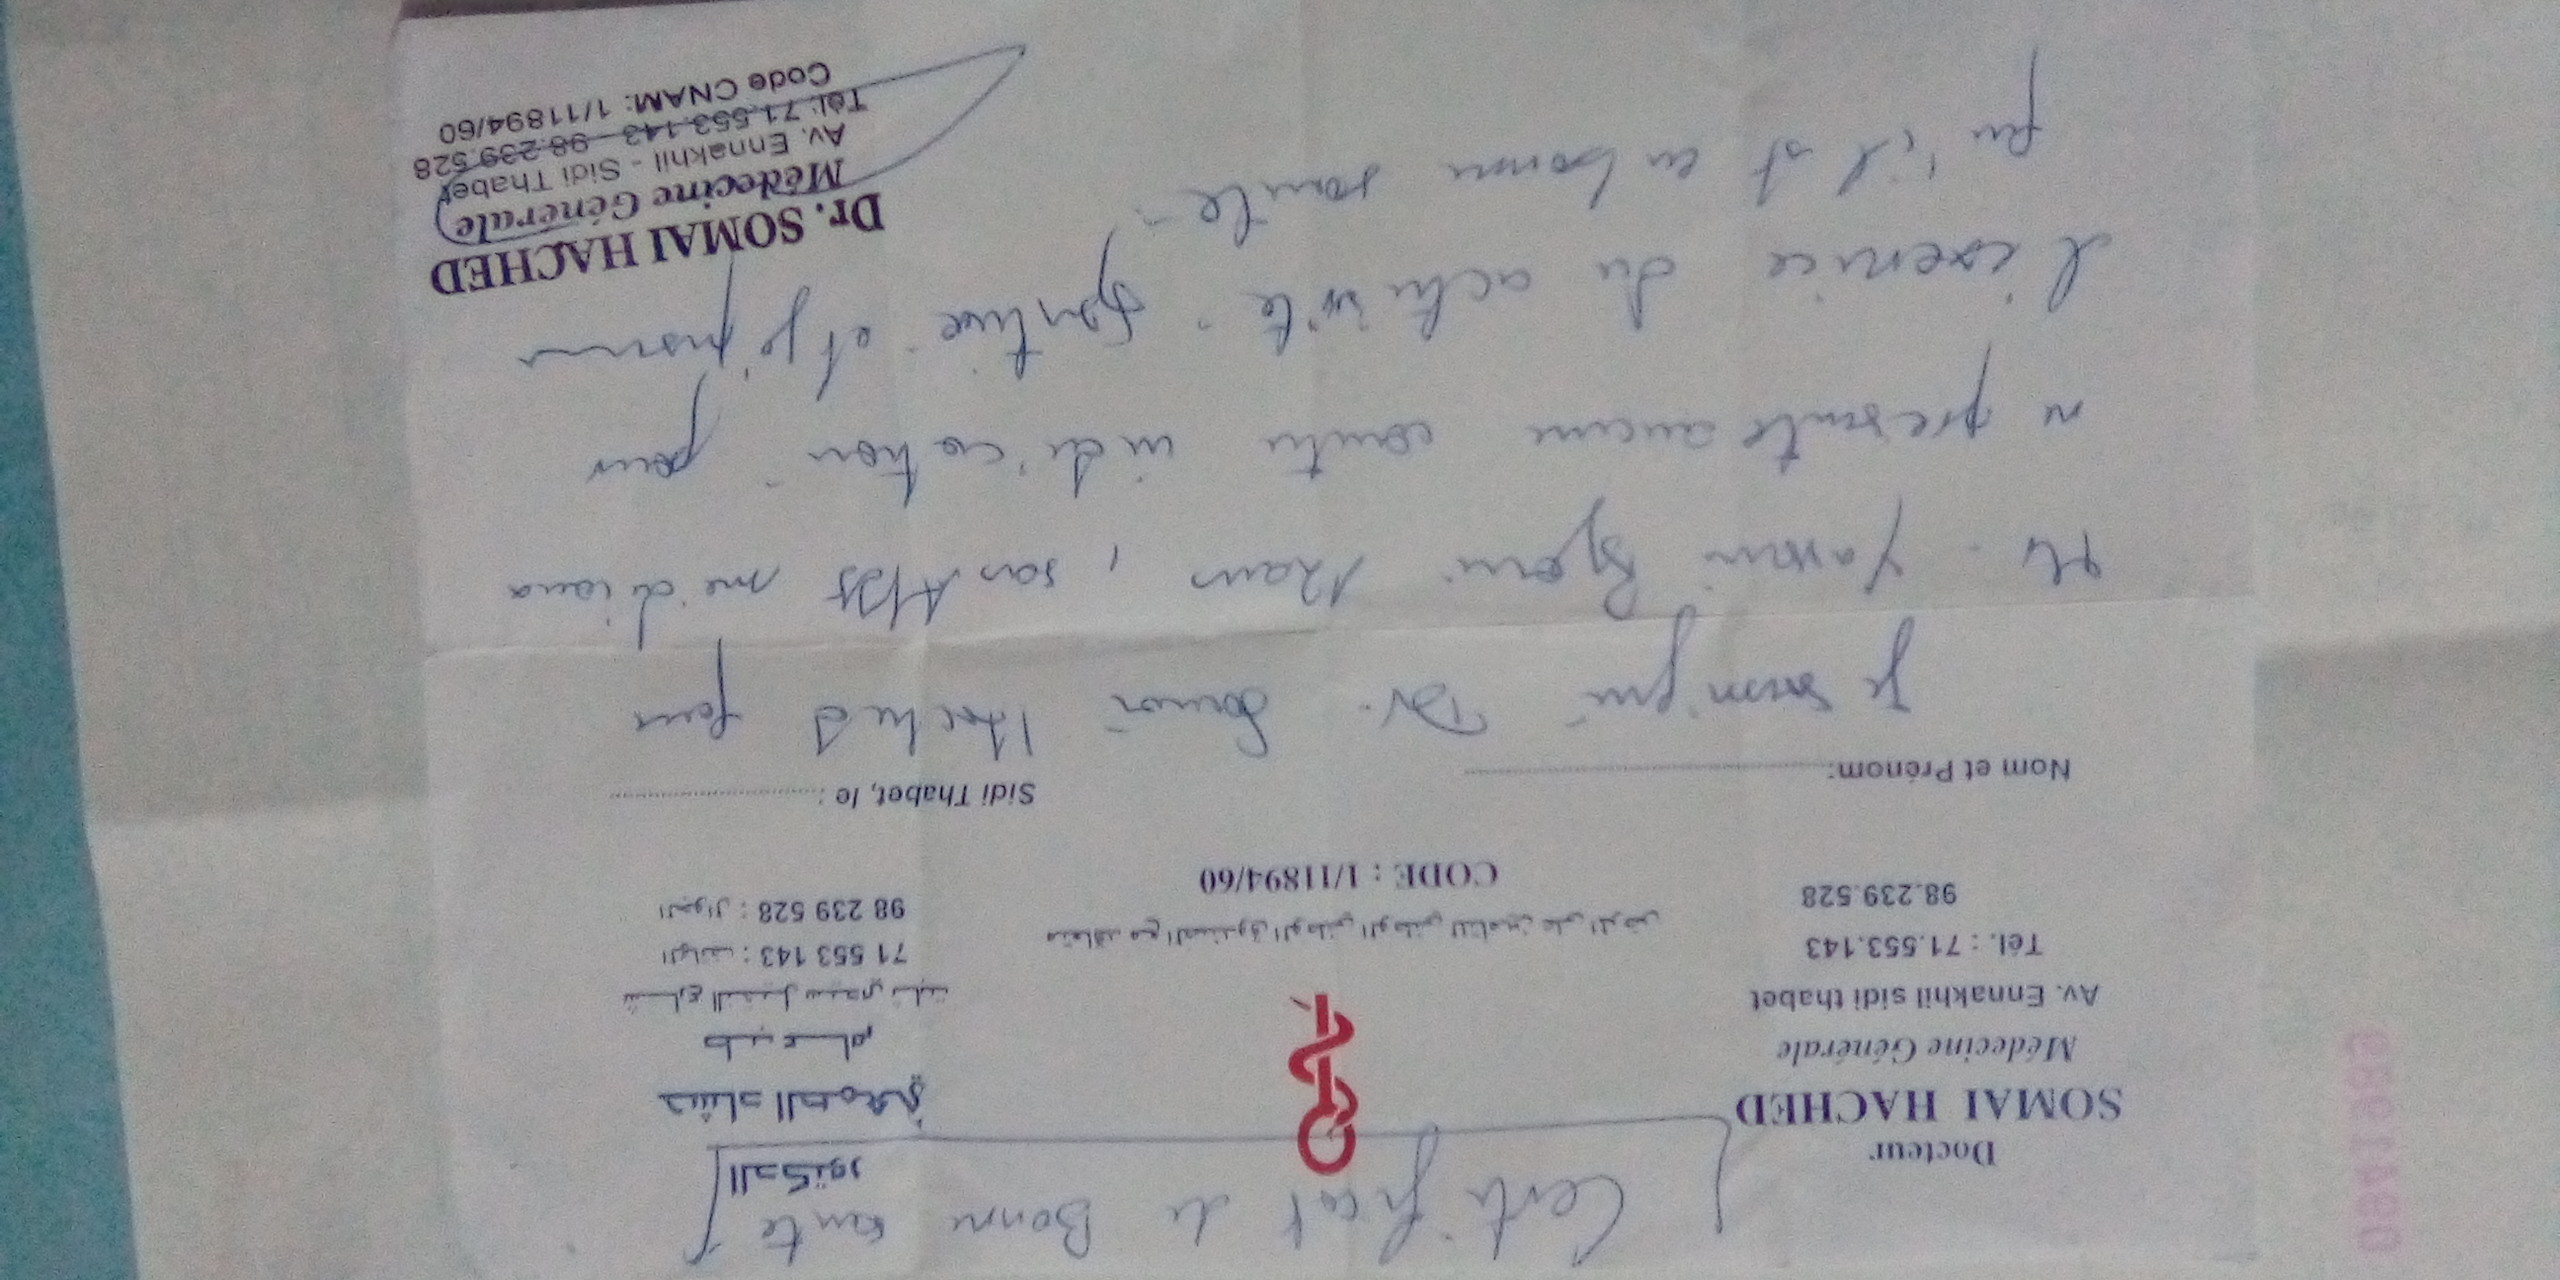 Certificat de Bonne sante
Docteur
SOMAI HACHED
Médecine Générale
Av. Ennakhil sidi thabet
Tél. : 71.553.143
98.239.528
الدكتور
حشاد الصومعي
طب عام
شارع النخيل سيدي ثابت
الهاتف : 71 553 143
الجوال : 98 239 528
متعاقد مع الصندوق الوطني للتأمين على المرض
CODE : 1/11894/60
Sidi Thabet, le :
Nom et Prénom:
Je soussigné Dr. Somai Hached que
Mr. Yassin, sans ATCD médicaux
ne presente aucune contre indication pour
l'exercice du activité sportive et
qu'il est en bonne sante
Dr. SOMAI HACHED
Médecine Générale
Av. Ennakhil - Sidi Thabet
Tél: 71.553.143 - 98.239.528
Code CNAM: 1/11894/60